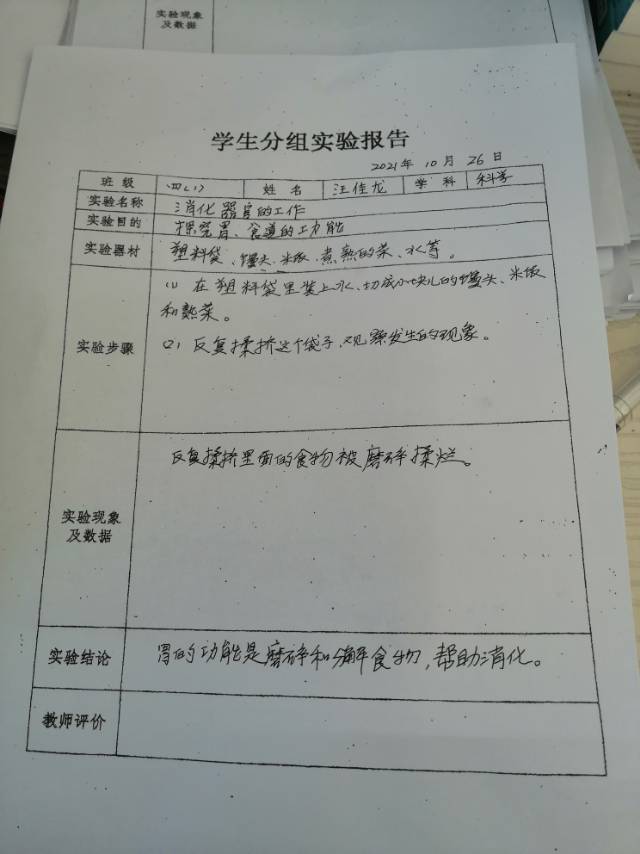 实验现象
及数据
学生分组实验报告
2021年 10月 26日
班级 四(1) 姓名 汪佳龙 学科 科学
实验名称 消化器官的工作
实验目的 探究胃、食道的功能
实验器材 塑料袋、馒头、米饭、煮熟的菜、水等。
(1) 在塑料袋里装上水、切成小块儿的馒头、米饭
和熟菜。
实验步骤
(2) 反复揉挤这个袋子,观察发生的现象。
反复揉挤里面的食物被磨碎揉烂。
实验现象
及数据
实验结论 胃的功能是磨碎和分解食物,帮助消化。
教师评价